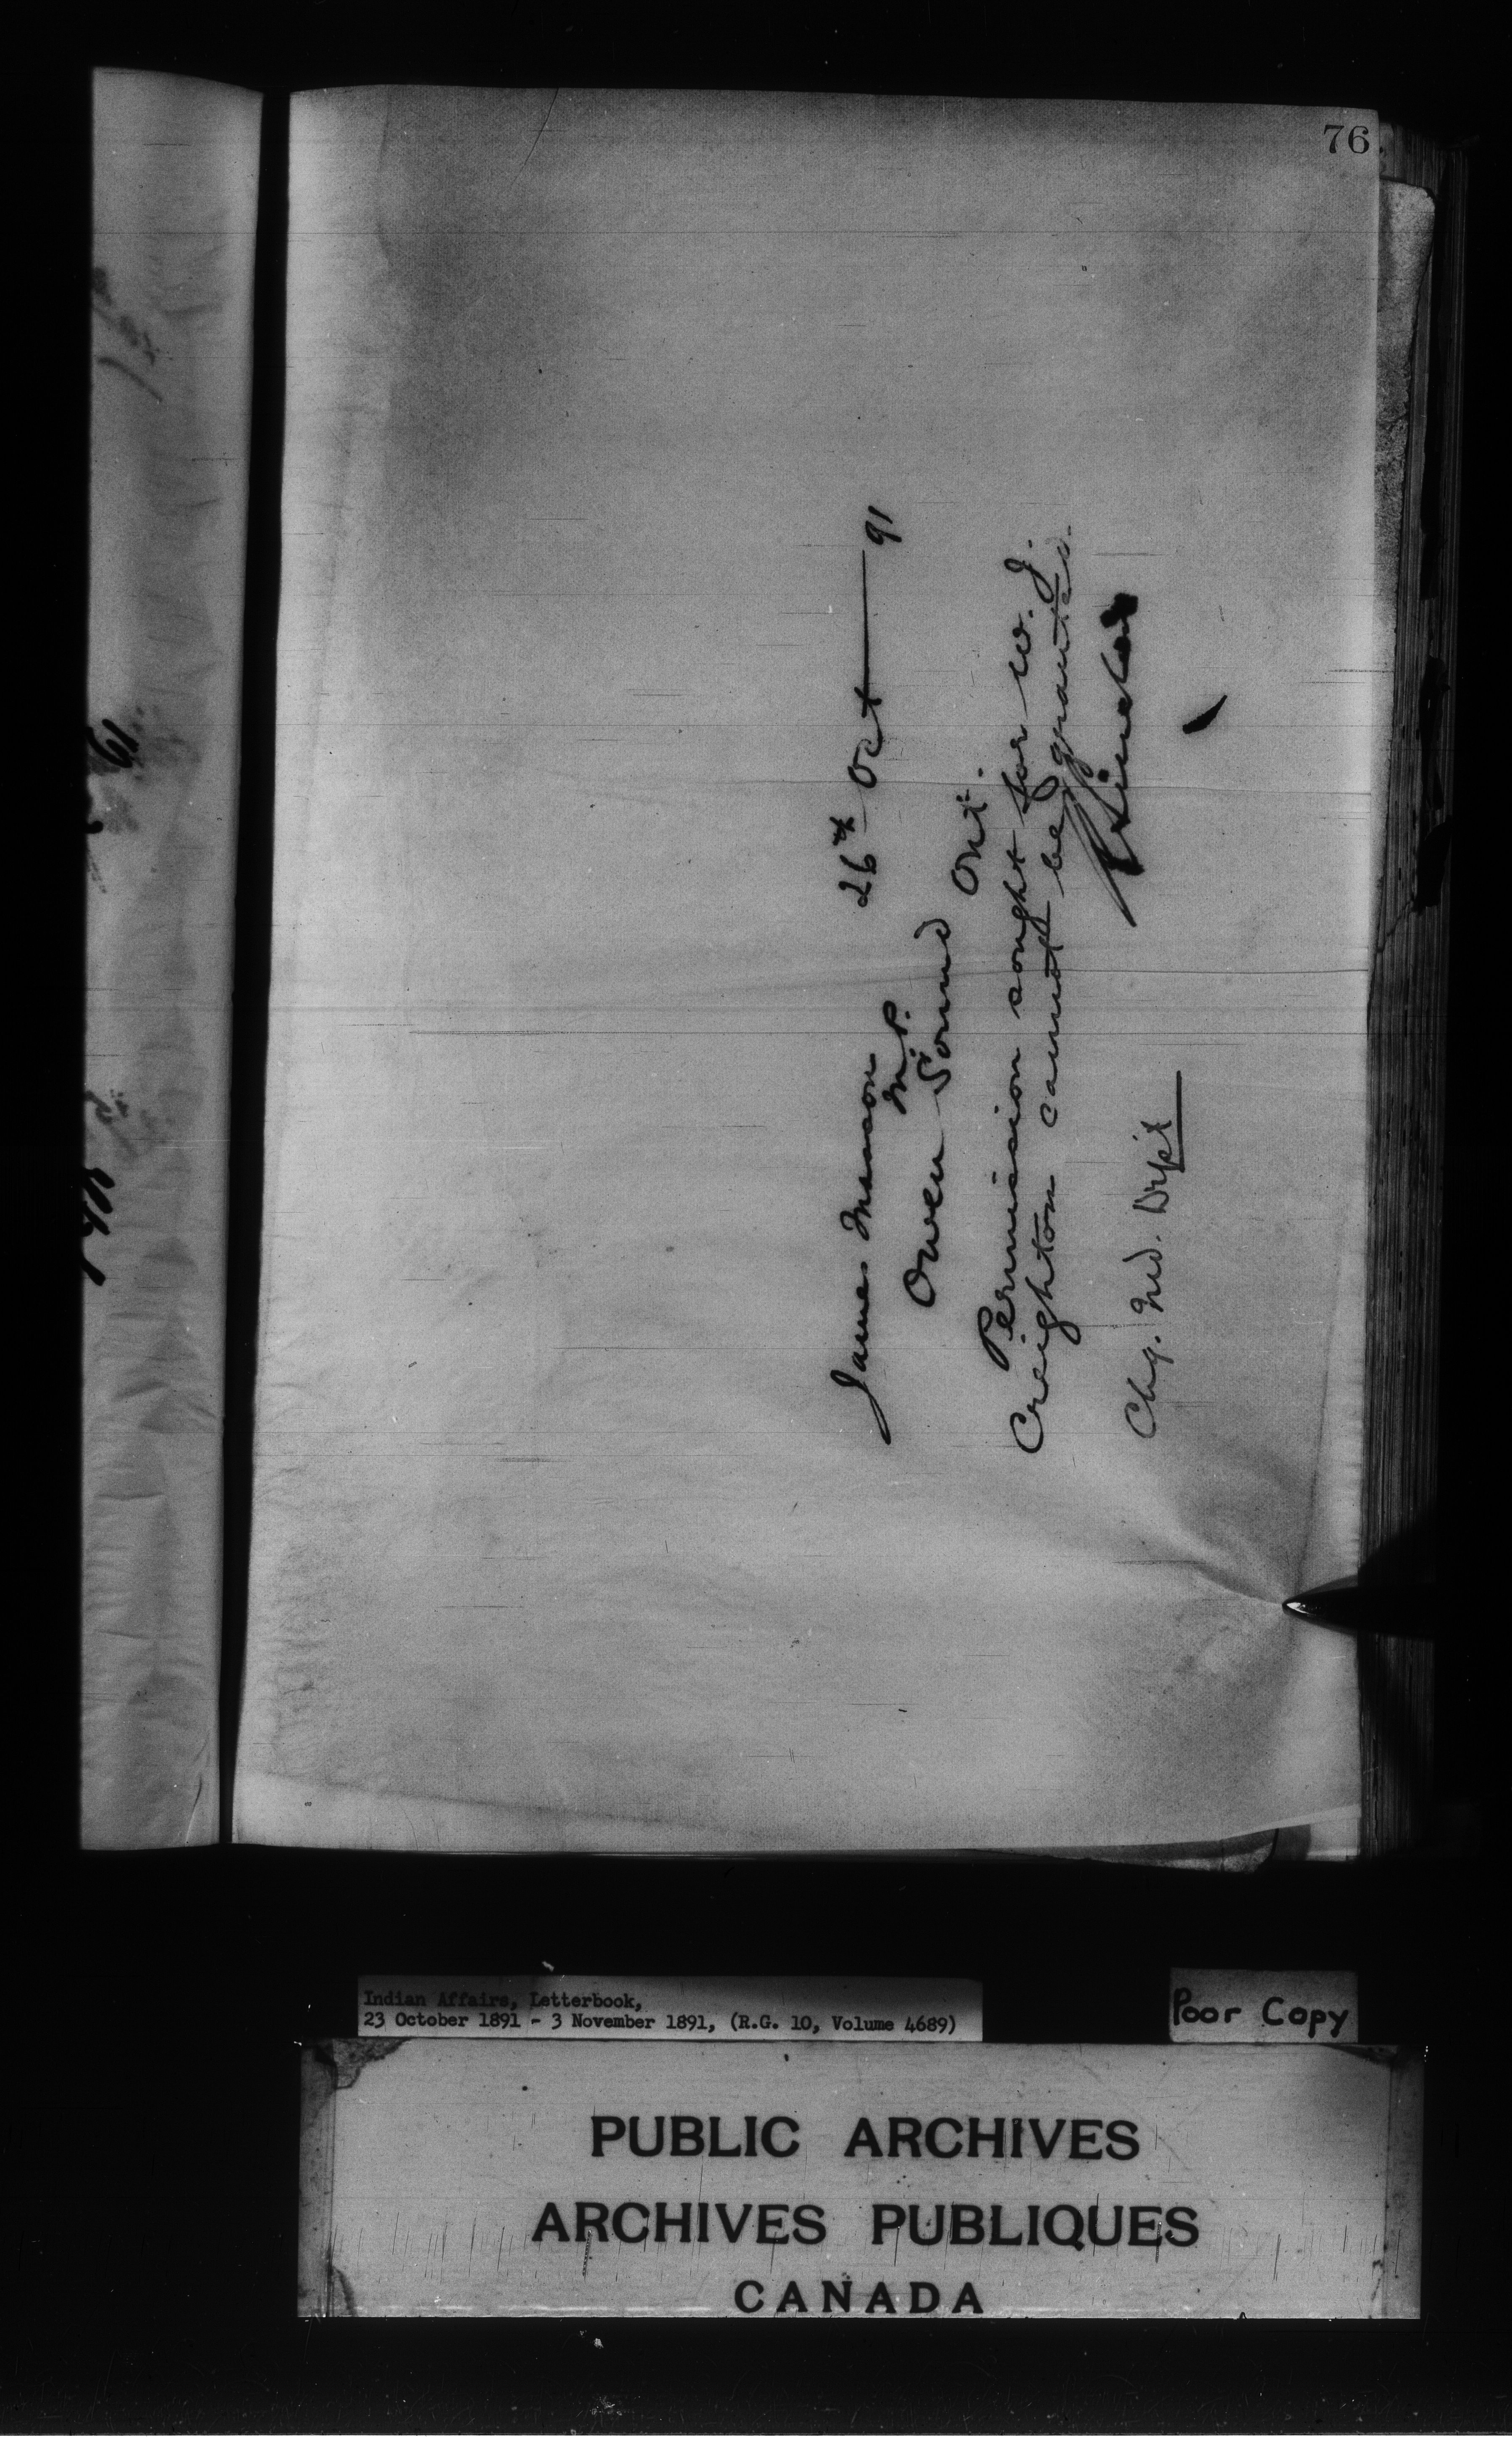 76.
26th Oct 91
James Masson
M.P.
Owen Sound
Ont.
Permission sought for W. J.
Creighton cannot be granted.
R Sinclair
Chg. Ind. Dept
Indian Affairs, Letterbook,
23 October 1891 - 3 November 1891, (R.G. 10, Volume 4689)
Poor Copy
PUBLIC ARCHIVES
ARCHIVES PUBLIQUES
CANADA